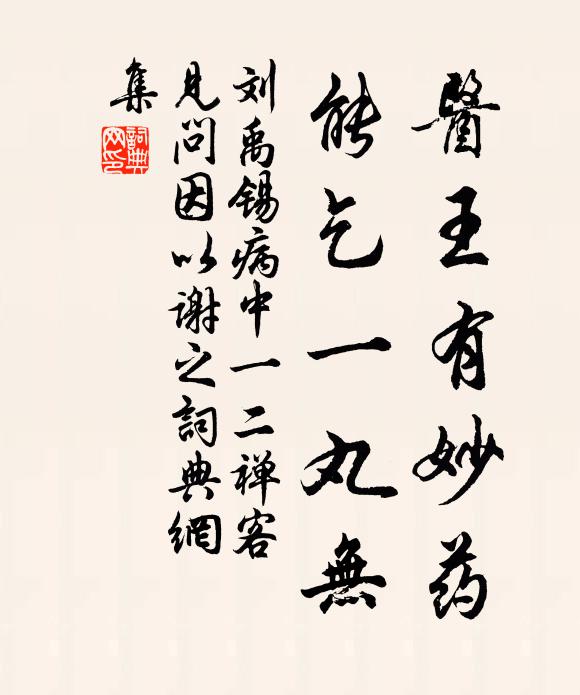 醫王有妙药
能乞一丸無
刘禹锡病中一二禅客
见问因以谢之詞典網
集
詞典
网印